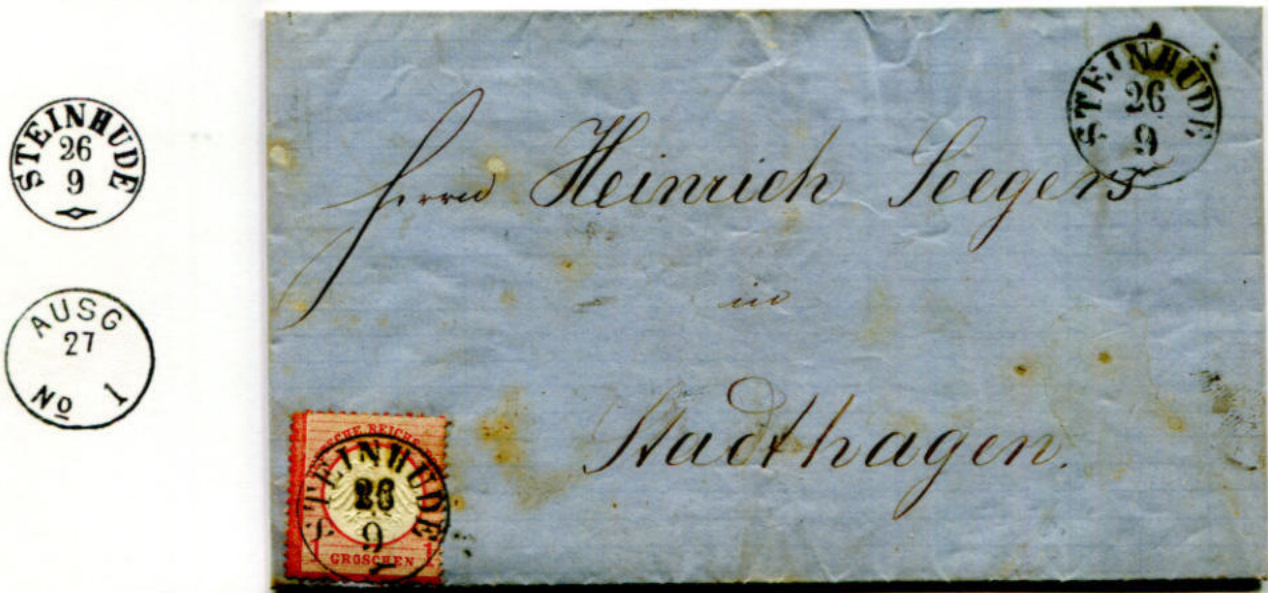 STEINHUDE
26
9
AUSG
27
No 1
STEINHUDE
26
9
Herrn Heinrich Seegers
in
Stadthagen.
SCHE REICHS
STEINHUDE
26
9
1 GROSCHEN 1